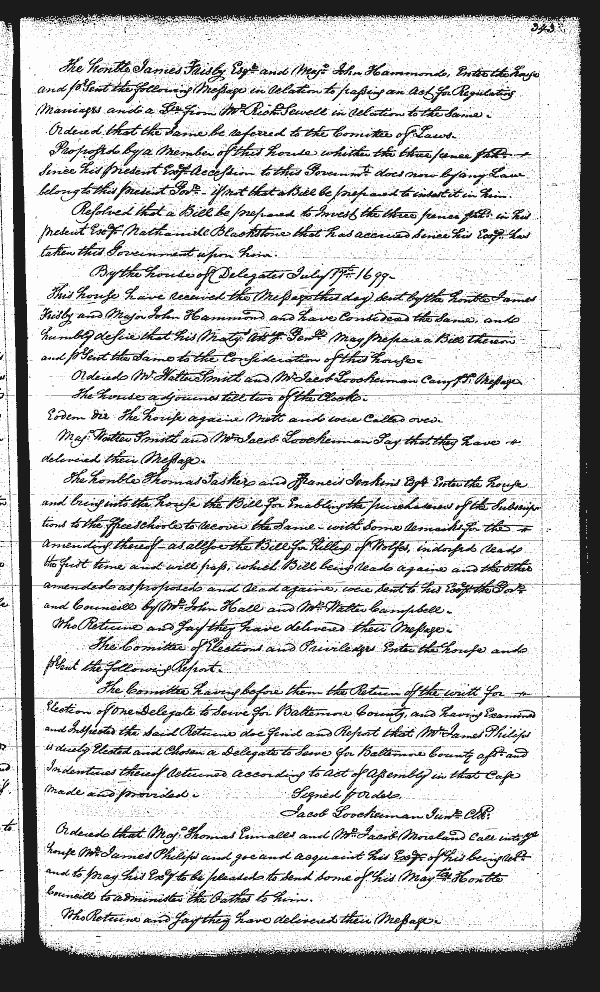 343
The honble James Frisby Esqr. and Majr. John Hammonds, Enter the house
and pṣent the following Meſsage in relation to paſsing an Act for Regulating
Marriages and a Lre from Mr. Richd Sewell in relation to the Same.
Ordered that the Same be referred to the Comittee of Laws.
Proposed by a Member of this house whither the three pence
Since his present Excys Accession to this Governmt. does now by any Law
belong to this present Govr. if not that a Bill be prepared to invest it in him.
Resolved that a Bill be prepared to Invest the three pence in his
present Excy Nathaniell Blackstone that has accrued Since his Excy. has
taken this Government upon him.
By the house of Delegates July 17th. 1699
This house have received the Meſsage this day Sent by the honble James
Frisby and Major John Hammond and have Considered the Same, and
humbly desire that his Matys. Att. Genll. May prepare a Bill thereon
and pṣent the Same to the Consideration of this house.
Ordered Mr. Walter Smith and Mr. Jacob Loockerman Carry sd. Meſsage
The house adjourns till two of the Clock.
Eodem die The house againe Mett and were Called over.
Majr. Walter Smith and Mr. Jacob Loockerman Say that they have
delivered their Meſsage.
The honble Thomas Tasker and Francis Jenkins Esqrs Enter the house
and bring into the house the Bill for Enabling the purchasers of the Subscrip
tions to the ffree schoole to recover the Same with Some remarks for the
amending thereof as allsoe the Bill for Killing of Wolfes, indorsed read
the first time and will paſs, which Bill being read againe and the other
amended as proposed and read againe, were Sent to his Excy the Govr.
and Councill by Mr. John Hall and Mr. Walter Campbell.
Who Returne and Say they have delivered their Meſsage.
The Comittee of Elections and Priviledges Enter the house and
pṣent the following Report.
The Comittee having before them the Return of the writt for
Election of one Delegate to Serve for Baltemore County, and having Examined
and Inspected the Said Returne doe find and Report that Mr. James Philips
is duely Elected and Chosen a Delegate to Serve for Baltemore County afd. and
Indentures thereof returned according to Act of Aſsembly in that Case
made and provided. Signed ꝑ order.
Jacob Loockerman Junr. Clk.
Ordered that Majr. Thomas Ennalls and Mr. Jacob Moreland Call into ye
house Mr. James Philips and goe and acquaint his Excy. of his being
and to pray his Excy to be pleased to Send some of his Matys. Honble
Councill to administer the Oathes to him.
Who Returne and Say they have delivered their Meſsage.